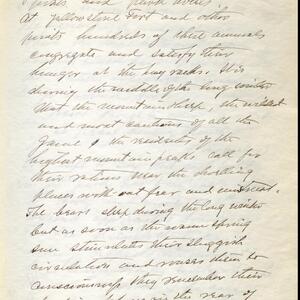 and
At Yellowstone Fort and other
points hundreds of these animals
congregate and satisfy their
hunger at the hay racks. It is
during the middle of the long winter
that the mountain sheep, the wildest
and most cautious of all the
Game & the residents of the
highest mountain peaks call for
their rations near the
places without fear and
The bears sleep during the long winter
but as soon as the warm spring
sun stimulates their sluggish
circulation and rouses them to
consciousness they remember their
the rear of